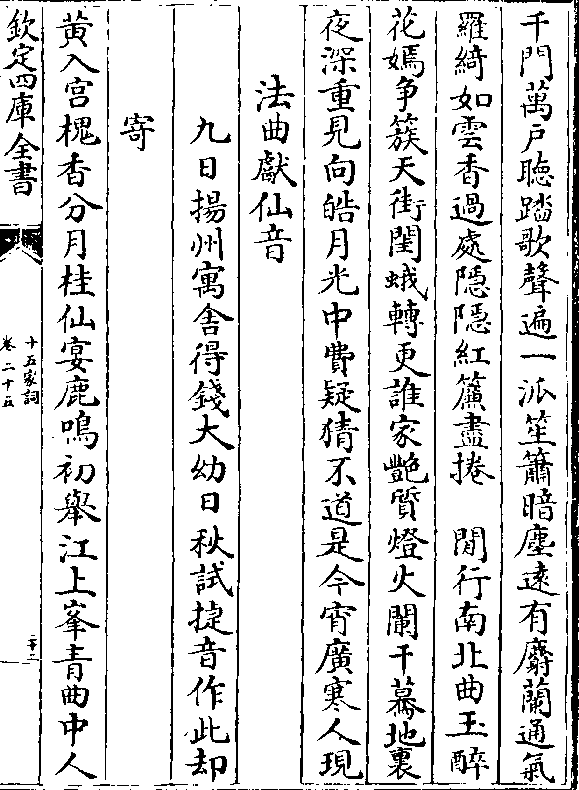 千門萬戸聴踏歌聲遍一派笙簫暗塵遠有麝蘭通氣
羅綺如雲香過處隠隠紅簾盡捲　閒行南北曲玉醉
花嫣争簇天街閙蛾轉更誰家艶質燈火闌干驀地裏
夜深重見向皓月光中費疑猜不道是今宵廣寒人現
法曲獻仙音
九日揚州寓舎得錢大幼日秋試捷音作此却
寄
黄入宫槐香分月桂仙宴鹿鳴初舉江上峯青曲中人
欽定四庫全書
十五家詞
卷二十五
二十二